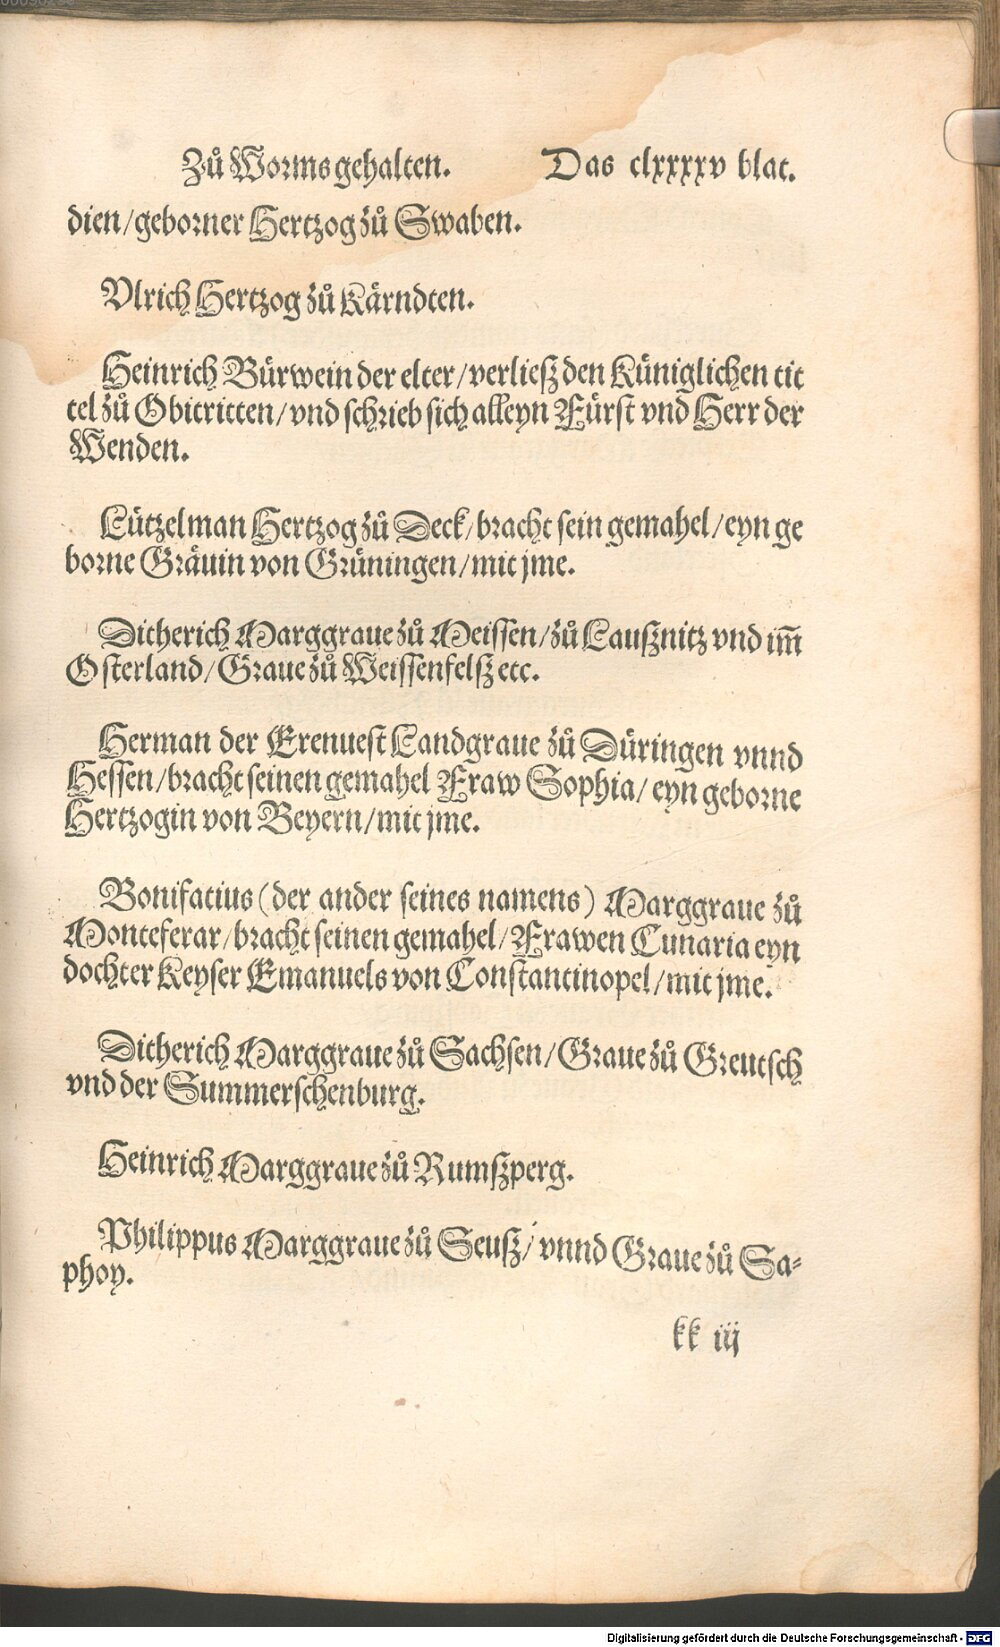 Zů Worms gehalten. Das clxxxxv blat.
dien/geborner Hertzog zů Swaben.
Vlrich Hertzog zů Kärndten.
Heinrich Bürwein der elter/verließ den Küniglichen tit
tel zů Obitritten/vnd schrieb sich alleyn Fürst vnd Herr der
Wenden.
Lützelman Hertzog zů Deck/bracht sein gemahel/eyn ge
borne Grävin von Grüningen/mit jme.
Ditherich Marggraue zů Meissen/zů Laußnitz vnd im̃
Osterland/Graue zů Weissenfelß etc.
Herman der Erenuest Landgraue zů Düringen vnnd
Hessen/bracht seinen gemahel Fraw Sophia/eyn geborne
Hertzogin von Beyern/mit jme.
Bonifatius (der ander seines namens) Marggraue zů
Monteferar/bracht seinen gemahel/Frawen Cunaria eyn
dochter Keyser Emanuels von Constantinopel/mit jme.
Ditherich Marggraue zů Sachsen/Graue zů Greutsch
vnd der Summerschenburg.
Heinrich Marggraue zů Rumßperg.
Philippus Marggraue zů Seuß/vnnd Graue zů Sa⸗
phoy.
kk iij
Digitalisierung gefördert durch die Deutsche Forschungsgemeinschaft - DFG